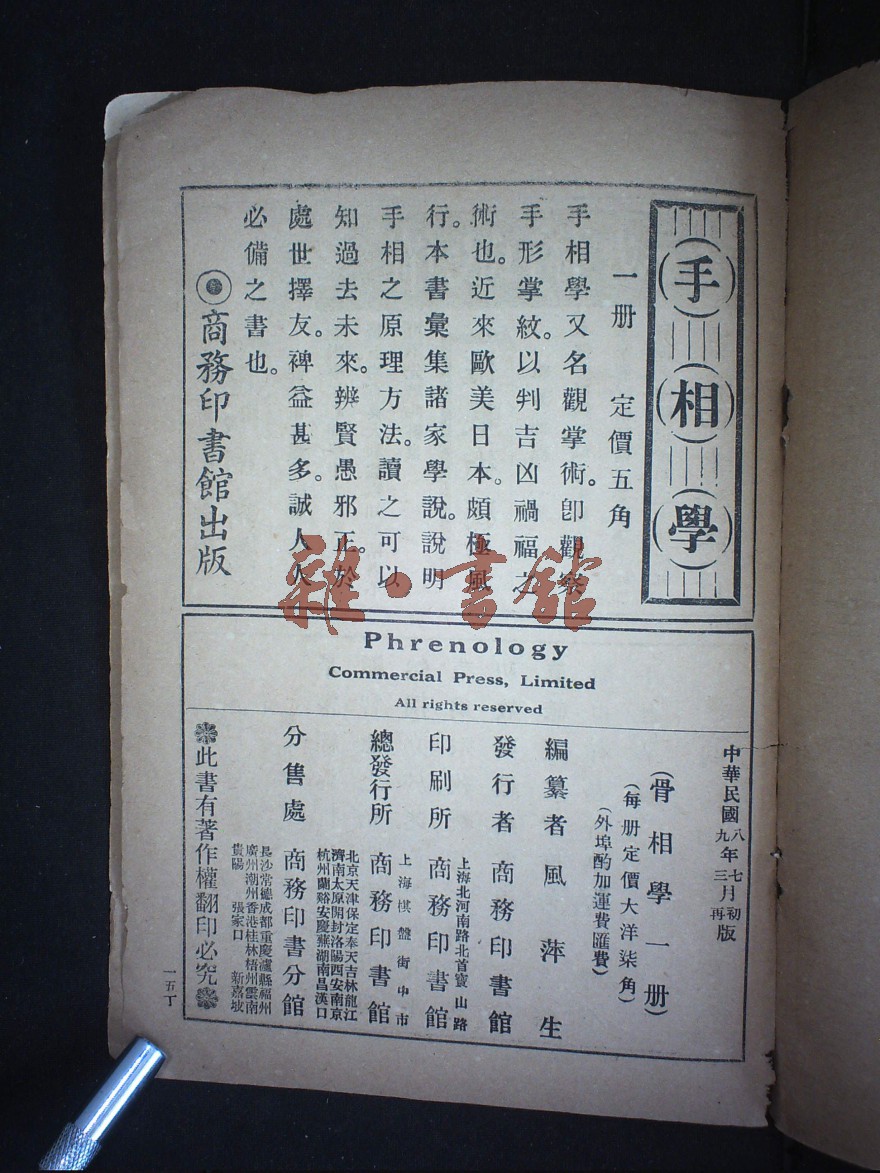 手相學
一册　定價五角
手相學又名觀掌術。卽觀察
手形掌紋。以判吉凶禍福之
術也。近來歐美日本。頗極風
行。本書彙集諸家學說。說明
手相之原理方法。讀之可以
知過去未來。辨賢愚邪正。於
處世擇友。裨益甚多。誠人人
必備之書也。
商務印書館出版
雜·書館
Phrenology
Commercial Press, Limited
All rights reserved
中華民國八年七月初版
九年三月再版
(骨相學一册)
(每册定價大洋柒角)
(外埠酌加運費匯費)
編纂者 風萍生
發行者 商務印書館
上海北河南路北首寶山路
印刷所 商務印書館
上海棋盤街中市
總發行所 商務印書館
北京天津保定奉天吉林龍江
濟南太原開封洛陽西安南京
杭州蘭谿安慶蕪湖南昌漢口
分售處 商務印書分館
長沙常德成都重慶瀘縣福州
廣州潮州香港桂林梧州雲南
貴陽 張家口 新嘉坡
此書有著作權翻印必究
一五丁